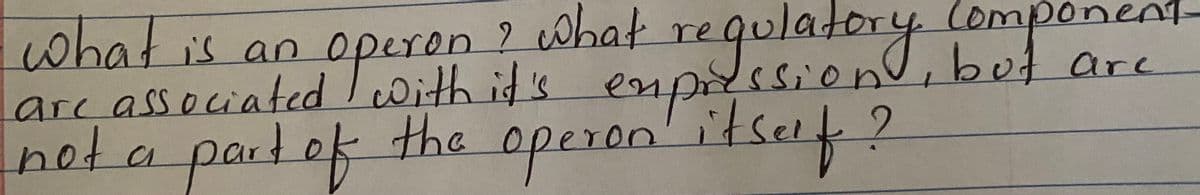 what is an operon ? what regulatory component
are associated with it's expression, but are
not a part of the operon itself ?